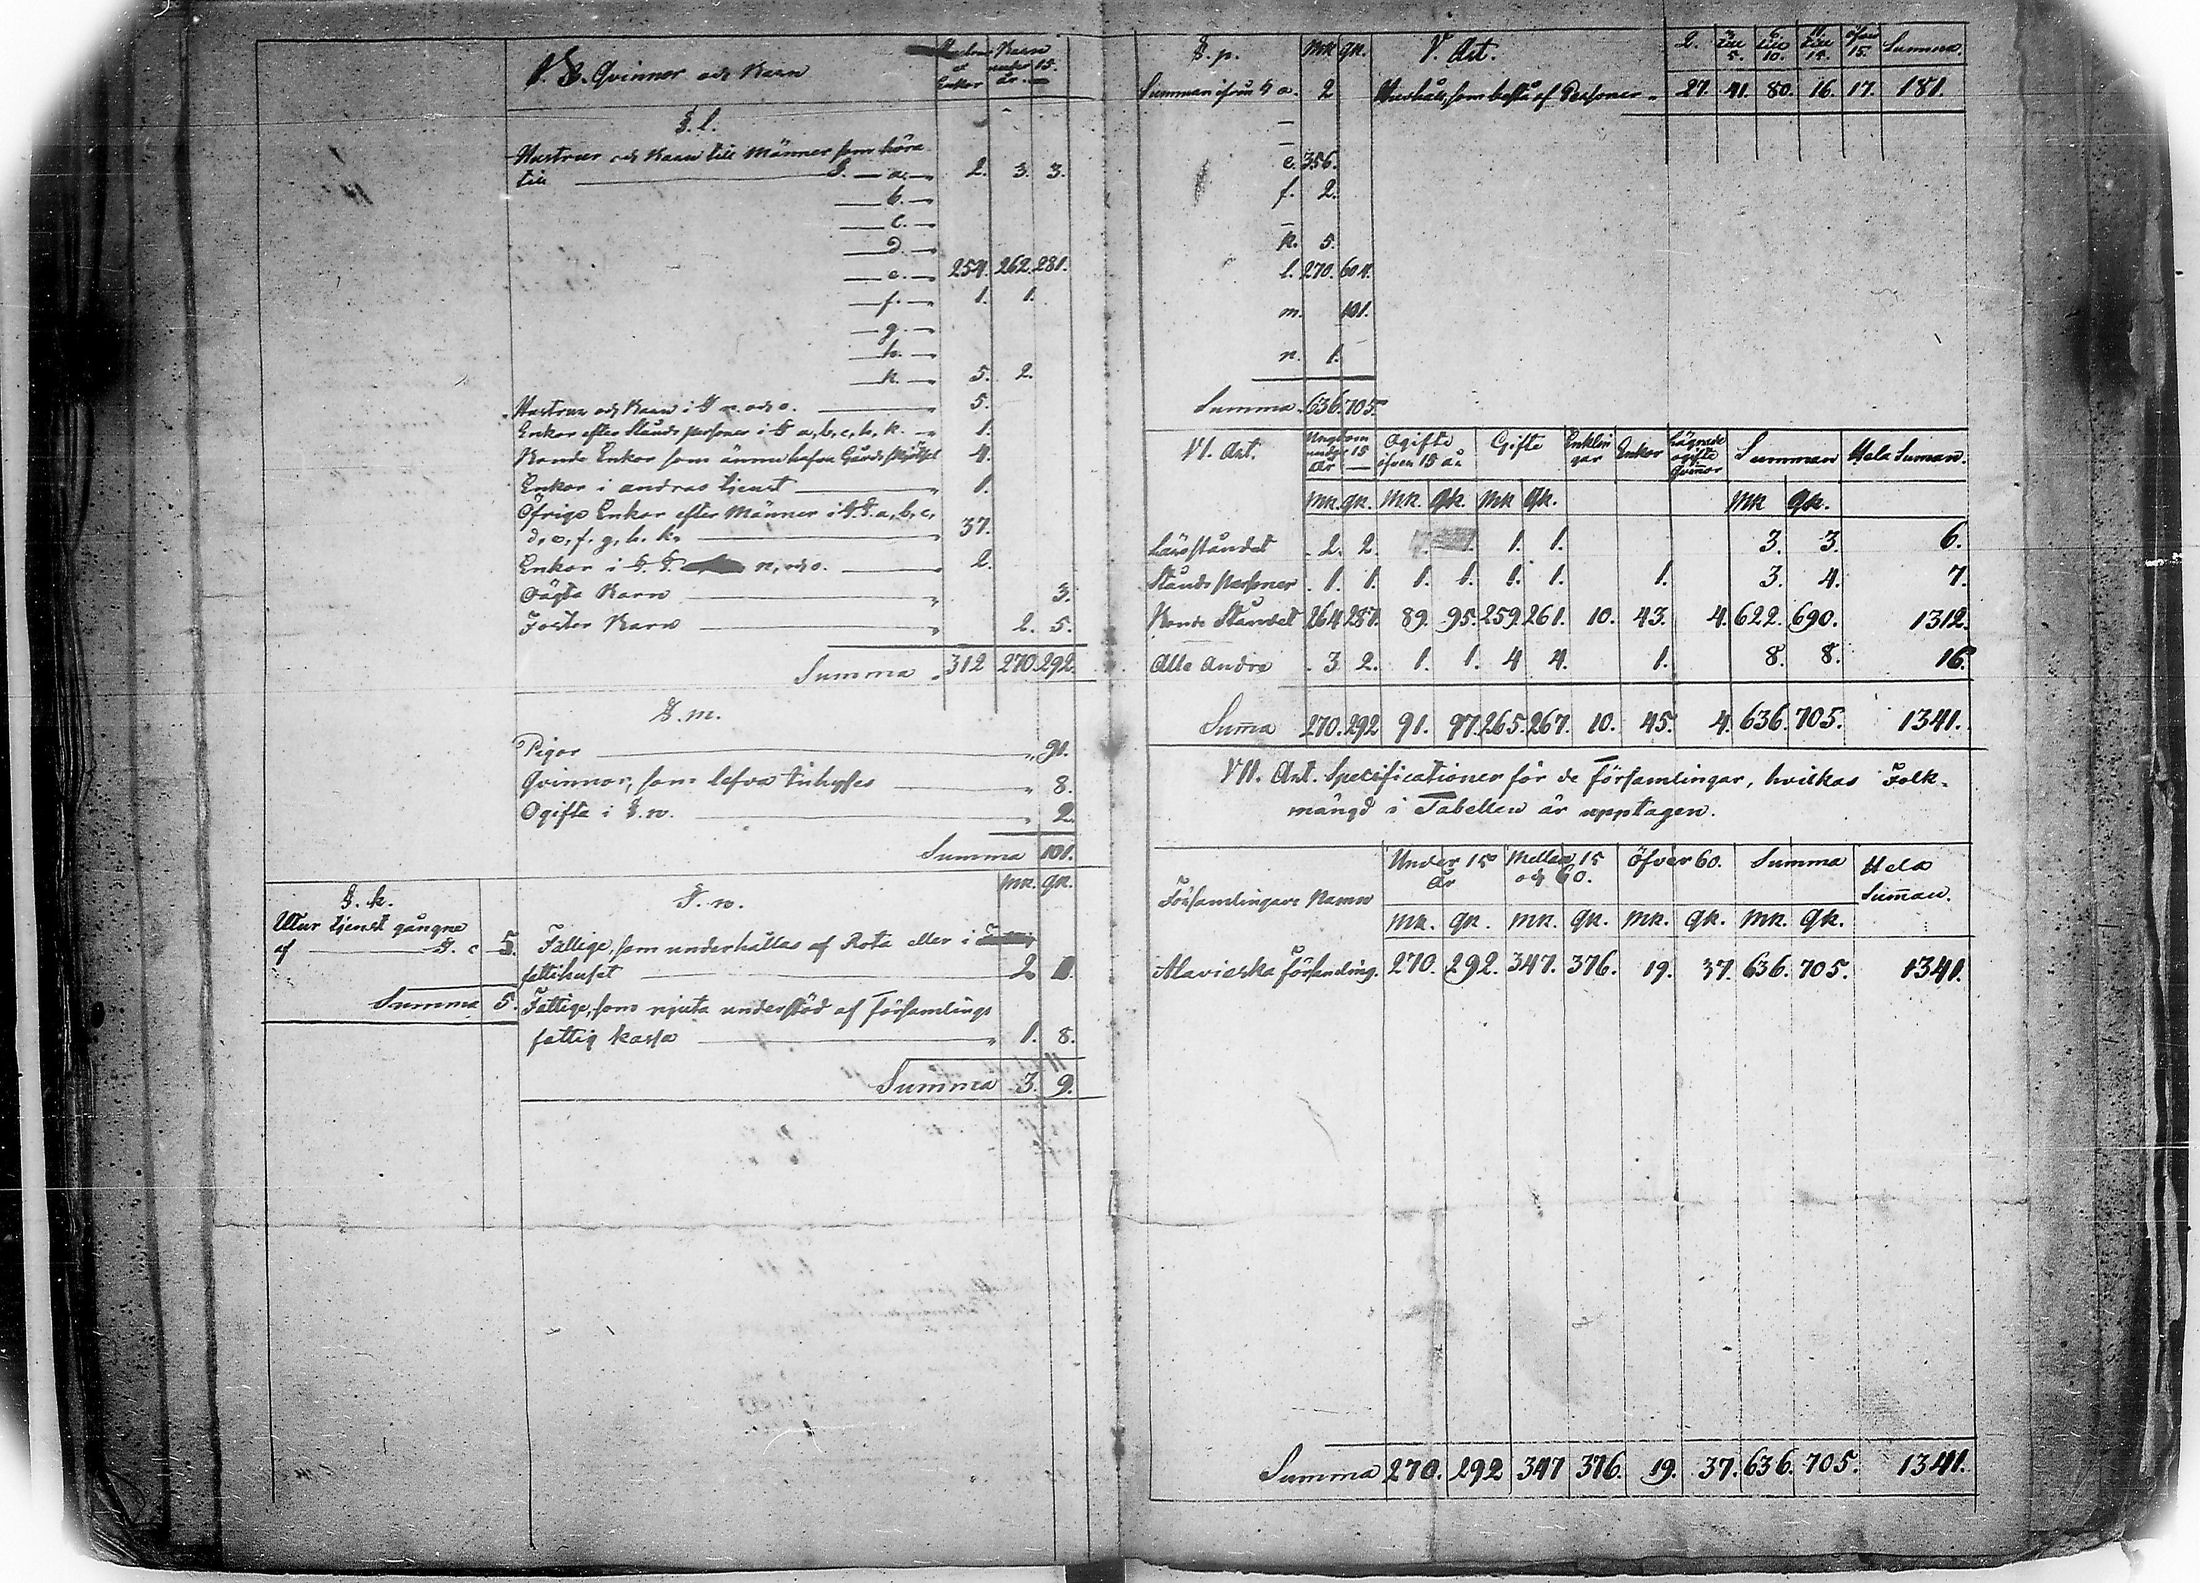 §. Qvinnor och Barn
Enkor
Barn under 15 år
§. l.
Hustrur och Barn till Männer som höra
till §. a. 2. 3. 3.
b.
c.
d.
e. 254. 262. 281.
f. 1. 1.
g.
h.
k. 5. 2.
Hustrur och Barn i § n. och o. 5.
Enkor efter Stånds personer i § a, b, c, h, k. 1.
Bonde Enkor som ännu hafva Gårdsskjötsel 4.
Enkor i andras tjenst 1.
Öfrige Enkor efter Männer i §.§. a, b, c,
d, e, f, g, h, k. 37.
Enkor i §.§. n, och o. 2.
Oägta Barn 3.
Foster Barn 2. 5.
Summa 312 270. 292.
§. m.
Pigor 91.
Qvinnor, som lefva inhyses 8.
Ogifta i §. n. 2
Summa 101.
§. k.
Utur tjenst gångne
af §. c 5.
Summa 5.
§. n. mk. qk.
Fattige, som underhållas af Rota eller i
fattihuset 2 1.
Fattige, som njuta understöd af församlings
fattig kassa 1. 8.
Summa 3. 9.
§. p. mk qk.
Summan ifrån § a. 2
e. 356.
f. 2.
k. 5.
l. 270. 604.
m. 101.
n. 1.
Summa 636. 705.
V. Art. 2. 3 till 5. 6. till 10. 11. till 15. öfver 15. Summa.
Hushåll, som bestå af Personer 27. 41. 80. 16. 17. 181.
VI. Art. Ungdom under 15 år Ogifte öfver 15 år Gifte Enklingar Enkor Lägrade ogifte Qvinnor Summan Hela Suman.
mk. qk. mk. qk. mk qk. mk qk.
Läroståndet 2. 2. 1. 1. 3. 3. 6.
Stånds personer 1. 1. 1. 1. 1. 1. 1. 3. 4. 7.
Bonde Ståndet 264. 287. 89. 95. 259. 261. 10. 43. 4. 622. 690. 1312.
Alle andre 3. 2. 1. 1. 4 4. 1. 8. 8. 16.
Suma 270. 292 91. 97. 265. 267. 10. 45. 4. 636. 705. 1341.
VII. Art. Specificationer för de församlingar, hvilkas Folk-
mängd i Tabellen är upptagen.
Församlingars Namn Under 15 år Mellan 15 och 60. Öfver 60. Summa Hela Suman.
mk. qk. mk. qk. mk. qk. mk. qk.
Alavieska församling. 270. 292. 347. 376. 19. 37. 636. 705. 1341.
Summa 270. 292 347 376. 19. 37. 636. 705. 1341.